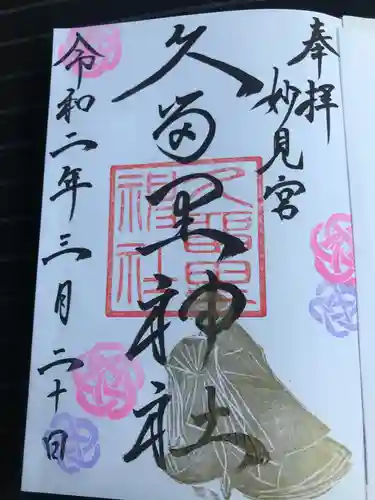 奉拝
妙見宮
久留里神社
久留里神社
令和二年三月二十日